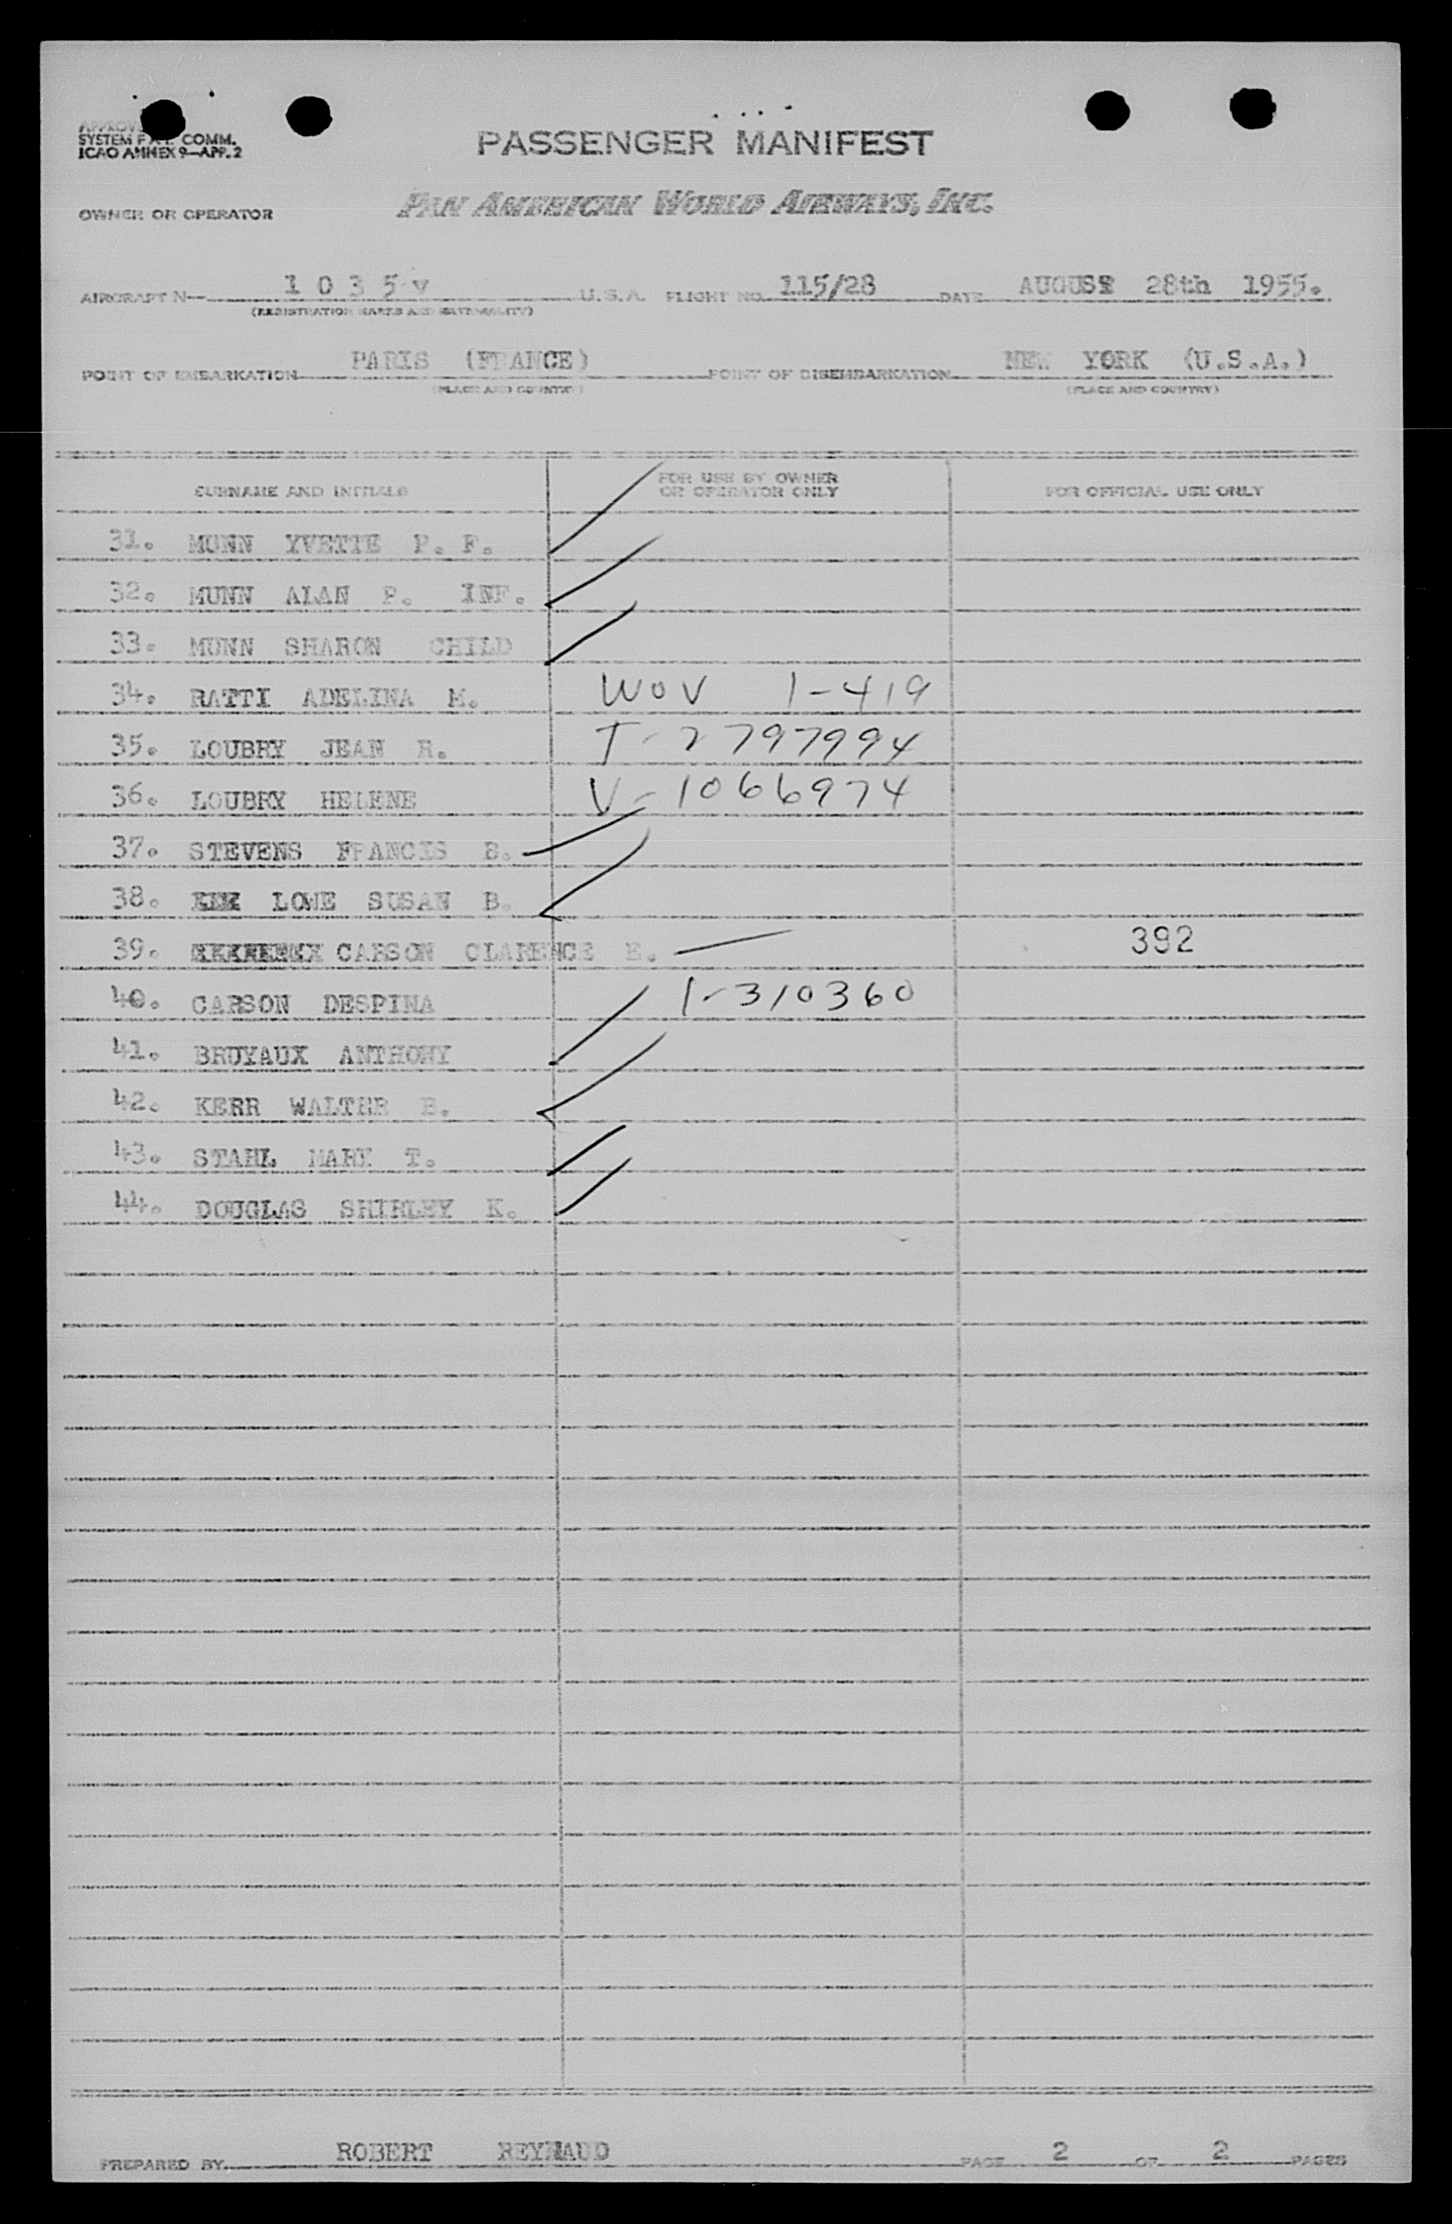 SYSTEM F.A.L. COMM.
ICAO ANNEX 9—APP. 2
PASSENGER MANIFEST
OWNER OR OPERATOR PAN AMERICAN WORLD AIRWAYS, INC.
AIRCRAFT N— 1 0 3 5 v U.S.A. FLIGHT NO. 115/28 DATE AUGUST 28th 1955.
(REGISTRATION MARKS AND NATIONALITY)
POINT OF EMBARKATION PARIS (FRANCE) POINT OF DISEMBARKATION NEW YORK (U.S.A.)
(PLACE AND COUNTRY) (PLACE AND COUNTRY)
SURNAME AND INITIALS FOR USE BY OWNER OR OPERATOR ONLY FOR OFFICIAL USE ONLY
31. MUNN YVETTE P. F.
32. MUNN ALAN P. INF.
33. MUNN SHARON CHILD
34. RATTI ADELINA M. WOV 1-419
35. LOUBRY JEAN R. T-2797994
36. LOUBRY HELENE V-1066974
37. STEVENS FRANCIS B.
38. LOWE SUSAN B.
39. CARSON CLARENCE E. 392
40. CARSON DESPINA 1-310360
41. BRUYAUX ANTHONY
42. KERR WALTER B.
43. STAHL MARY T.
44. DOUGLAS SHIRLEY K.
PREPARED BY ROBERT REYNAUD PAGE 2 OF 2 PAGES